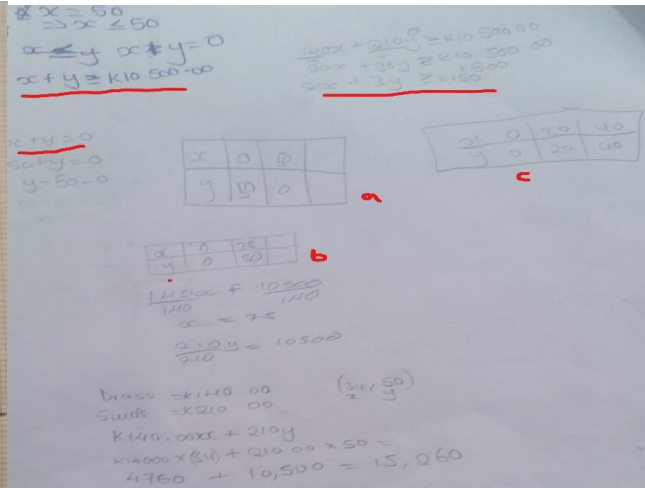 x = 50
⇒ x ≤ 50
x ≤ y x + y = 0
x + y ≥ K10 500.00
140x + 210y ≥ K10 500.00
2x + 3y ≥ 150
x + y = 0
50 + y = 0
y = 50 - 0
x 0 50
y 50 0
a
x 0 20 40
y 0 20 40
c
x 0 75
y 0 50
b
140x = 10500
140 140
x = 75
210y = 10500
210
Dress = K140 00
Suits = K210 00
(34, 50)
x y
K140.00x + 210y
x (34) + 210 00 x 50 =
4760 + 10,500 = 15,260